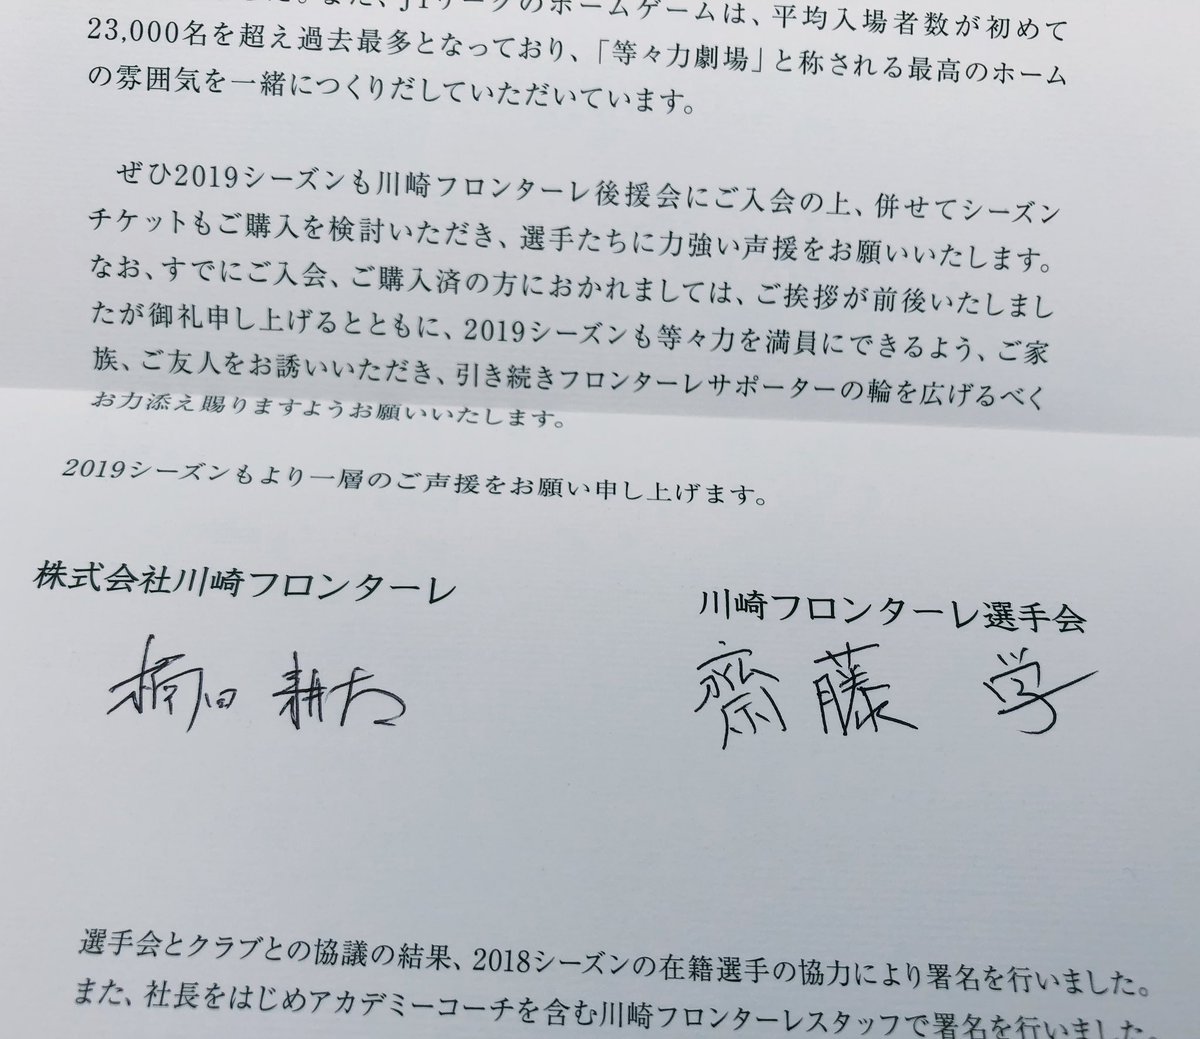 また、J1リーグのホームゲームは、平均入場者数が初めて
23,000名を超え過去最多となっており、「等々力劇場」と称される最高のホーム
の雰囲気を一緒につくりだしていただいています。
ぜひ2019シーズンも川崎フロンターレ後援会にご入会の上、併せてシーズン
チケットもご購入を検討いただき、選手たちに力強い声援をお願いいたします。
なお、すでにご入会、ご購入済の方におかれましては、ご挨拶が前後いたしまし
たが御礼申し上げるとともに、2019シーズンも等々力を満員にできるよう、ご家
族、ご友人をお誘いいただき、引き続きフロンターレサポーターの輪を広げるべく
お力添え賜りますようお願いいたします。
2019シーズンもより一層のご声援をお願い申し上げます。
株式会社川崎フロンターレ
川崎フロンターレ選手会
耕太
齋藤 学
選手会とクラブとの協議の結果、2018シーズンの在籍選手の協力により署名を行いました。
また、社長をはじめアカデミーコーチを含む川崎フロンターレスタッフで署名を行いました。